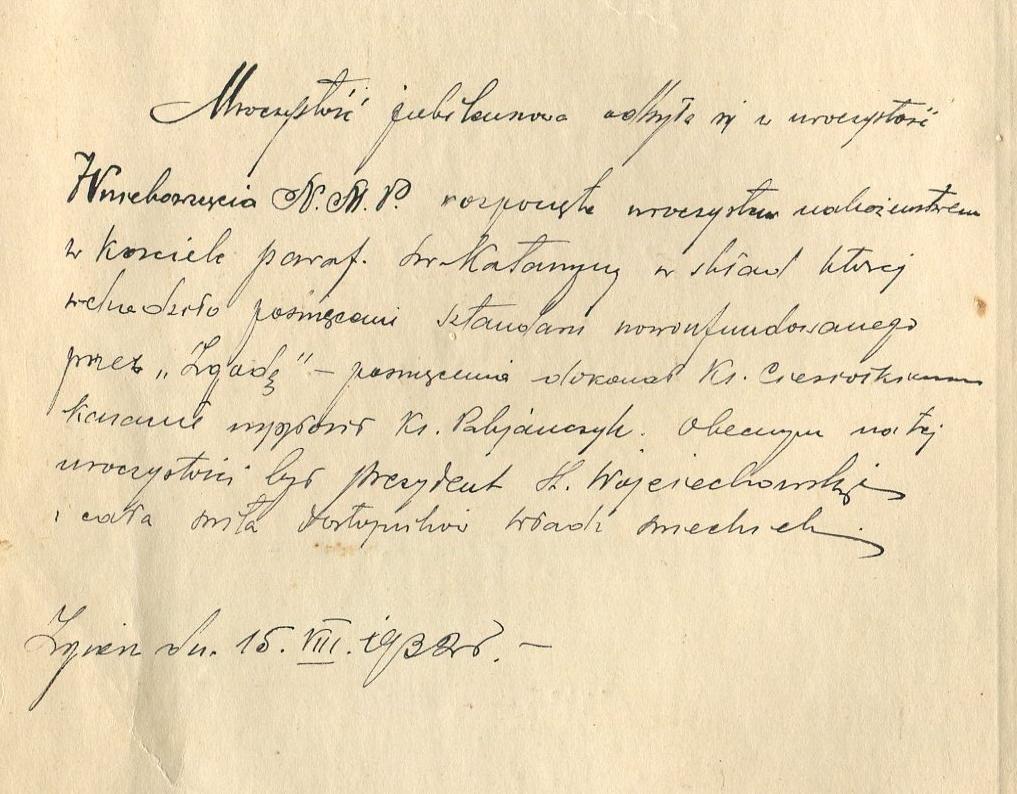 Uroczystość jubileuszowa odbyła się w uroczystość
Wniebowzięcia N.M.P. rozpoczęta uroczystem nabożeństwem
w kościele paraf. św Katarzyny w skład której
wchodziło poświęcenie sztandaru nowoufundowanego
przez „Zgodę" – poświęcenia dokonał Ks.
kazanie wygłosił Ks. Pabjańczyk. Obecnym na tej
uroczystości był prezydent St. Wojciechowski
i cała świta dostojników władz świeckich.
Zgierz dn. 15. VIII. 1932 r. –